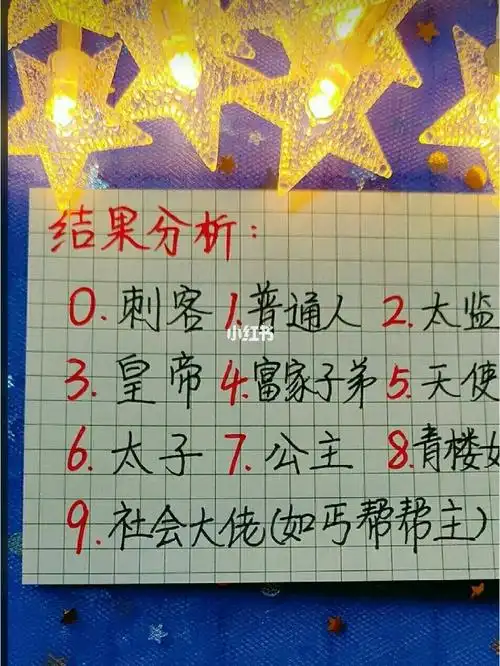 结果分析:
0.刺客 1.普通人 2.太监
3.皇帝 4.富家子弟 5.天使
6.太子 7.公主 8.青楼
9.社会大佬(如丐帮帮主)
小红书